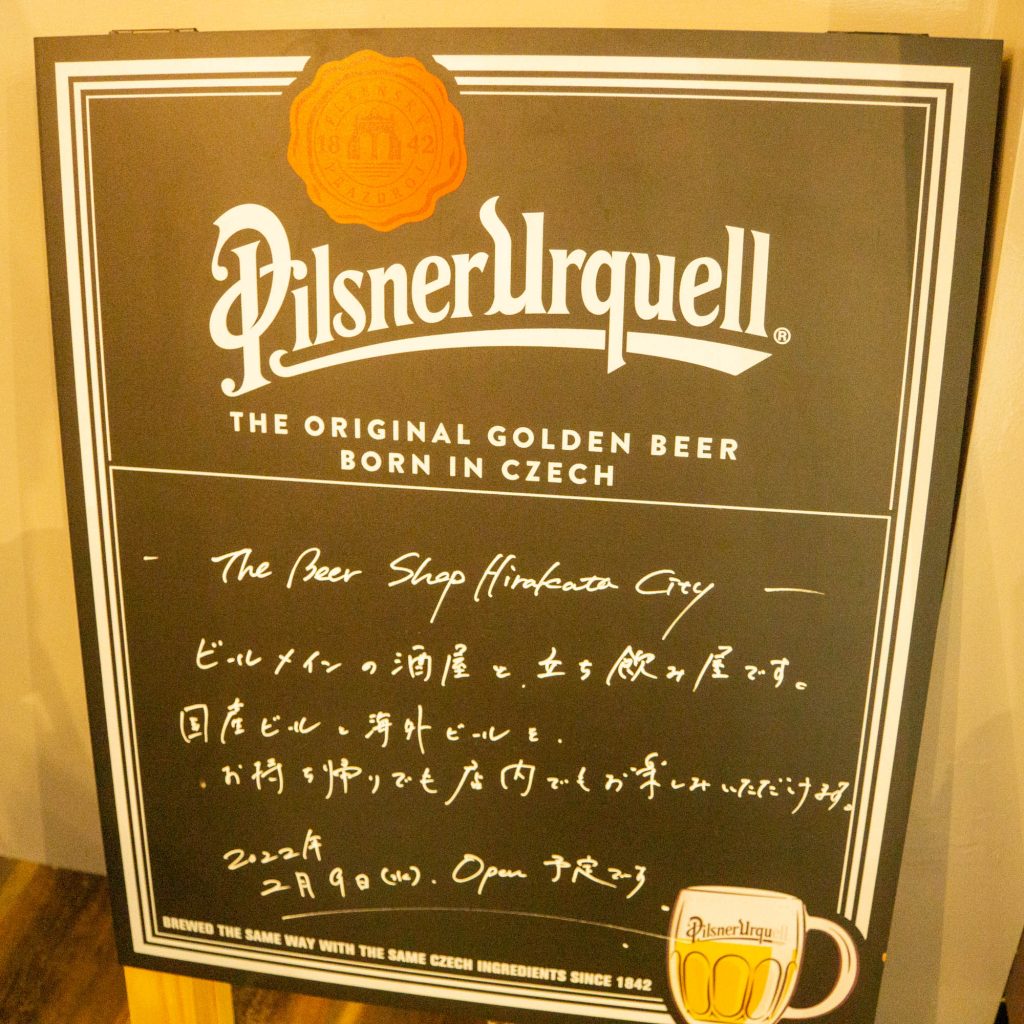 PLZEŇSKÝ
18 42
PRAZDROJ
Pilsner Urquell®
THE ORIGINAL GOLDEN BEER
BORN IN CZECH
- The Beer Shop Hirakata City -
ビールメインの酒屋と、立ち飲み屋です。
国産ビール、海外ビールを、
お持ち帰りでも店内でもお楽しみいただけます。
2022年
2月9日(水)、Open 予定です
BREWED THE SAME WAY WITH THE SAME CZECH INGREDIENTS SINCE 1842
Pilsner Urquell